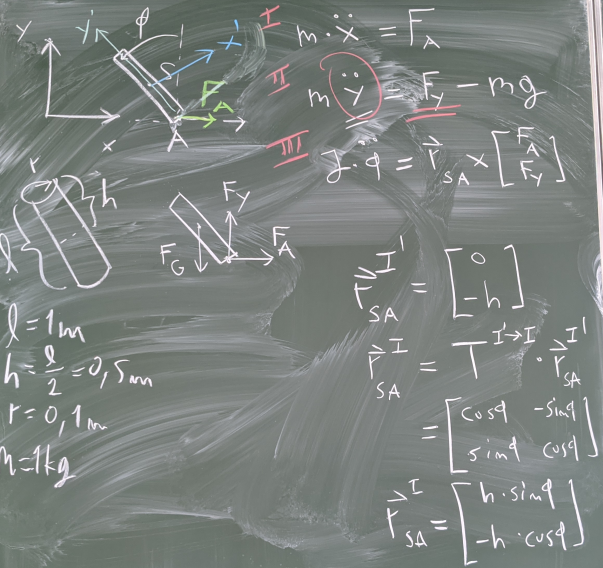 y y' φ x' I
S
F_A
A
x
m · ẍ = F_A
II m ÿ = F_y - mg
III J · φ̈ = r⃗_SA × [F_A F_y]
r h
l
F_y
F_G F_A
l = 1m
h = l/2 = 0,5m
r = 0,1m
m = 1kg
r⃗_SA^I' = [0 -h]
r⃗_SA^I = T^I'→I · r⃗_SA^I'
= [cosφ -sinφ
sinφ cosφ]
r⃗_SA^I = [h · sinφ
-h · cosφ]